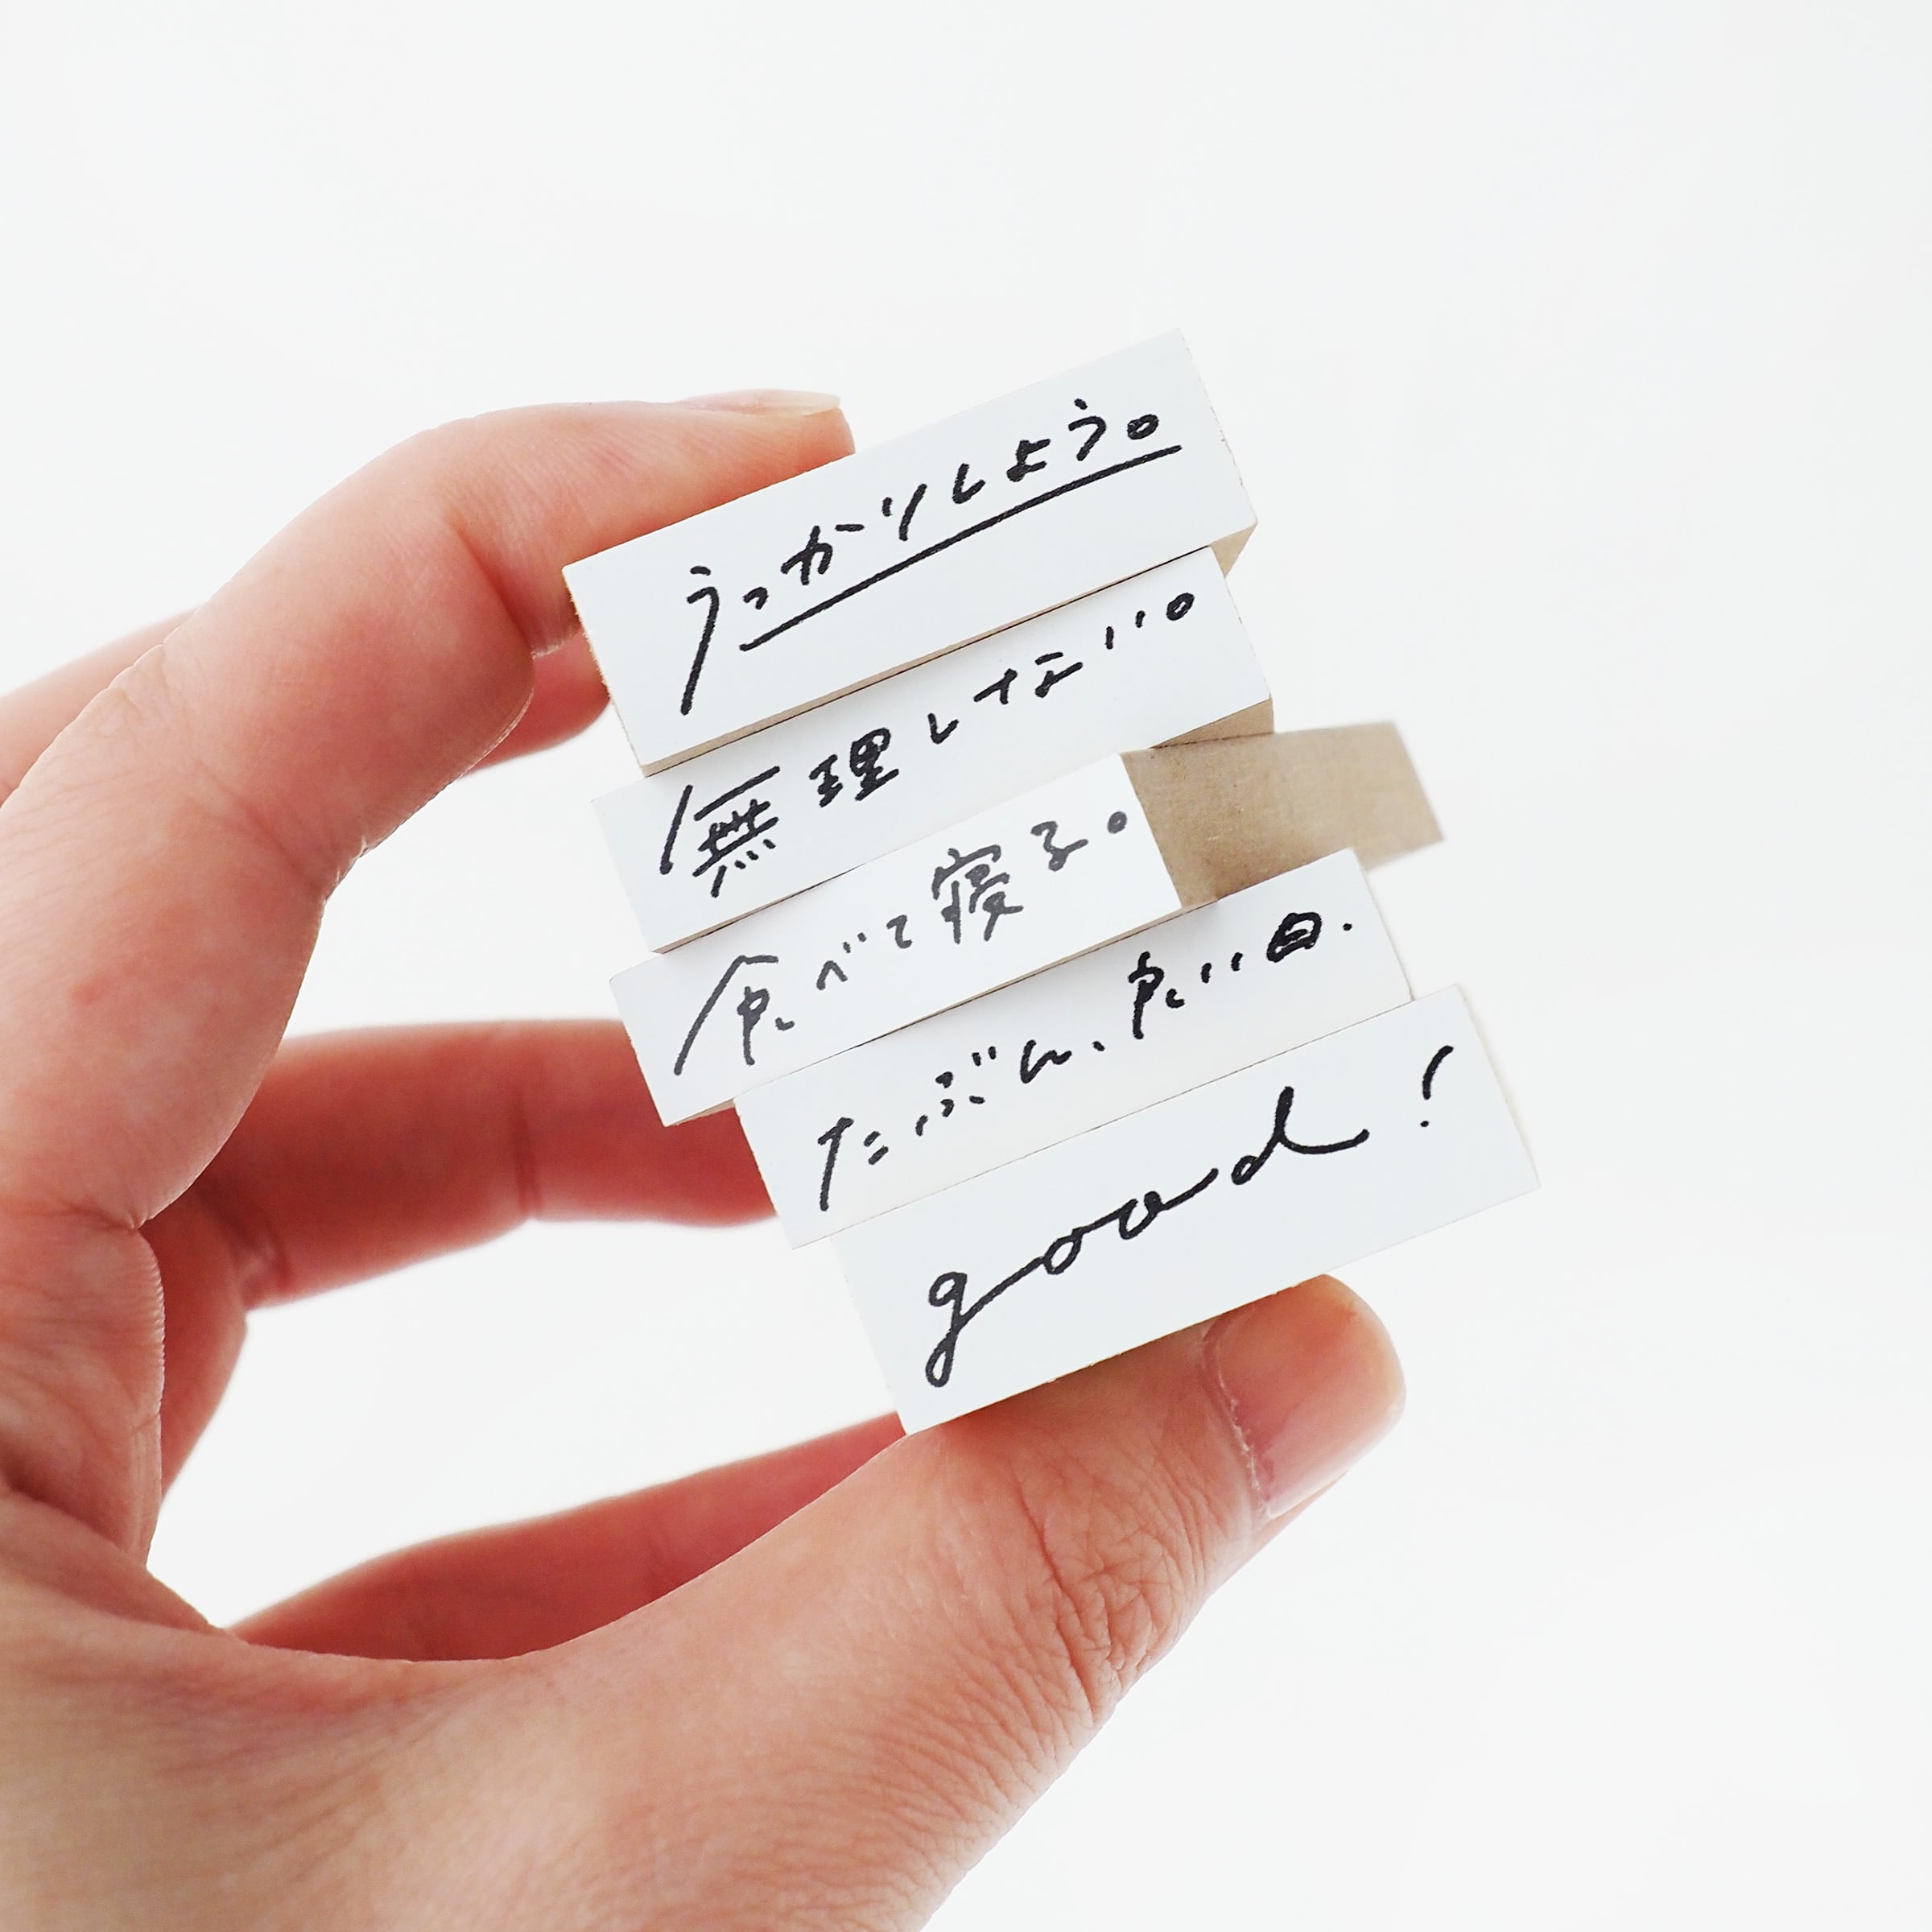 うっかりしよう。
無理しない。
食べて寝る。
たぶん、良い日.
good!